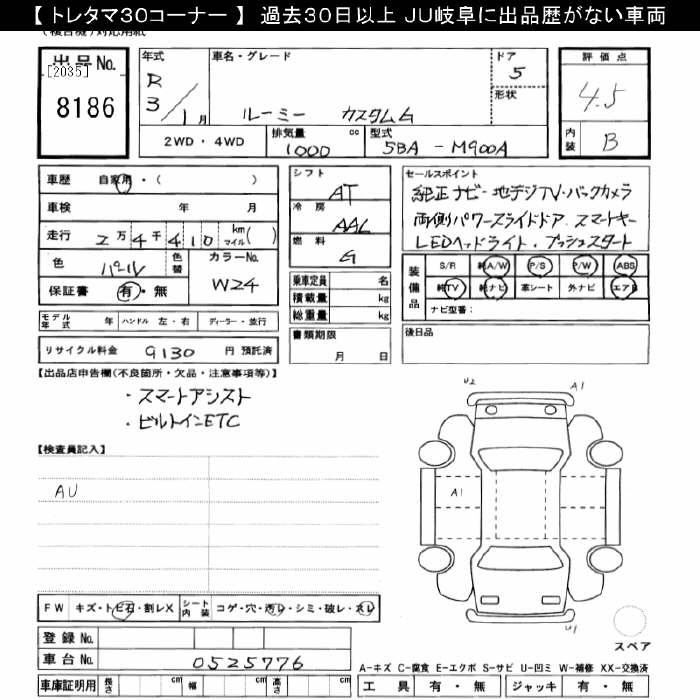 【 トレタマ30コーナー 】 過去30日以上 JU岐阜に出品歴がない車両
(複合機)対応用紙
出品No.
[2035]
8186
年式
R3/1月
車名・グレード
ルーミー カスタムG
ドア
5
形状
評価点
4.5
内装
B
2WD・4WD
排気量 cc
1000
型式
5BA - M900A
車歴 自家用・( )
車検 年 月
走行 2万4千410 km マイル( )
色 パール 色替
カラーNo.
W24
保証書 有・無
モデル年式 年 ハンドル 左・右 ディーラー・並行
リサイクル料金 9130 円 預託済
シフト
AT
冷房
AAC
燃料
G
乗車定員 名
積載量 kg
総重量 kg
書類期限
月 日
セールスポイント
純正ナビ・地デジTV・バックカメラ
両側パワースライドドア スマートキー
LEDヘッドライト・プッシュスタート
装備品
S/R 純A/W P/S P/W ABS
純TV 純ナビ 革シート 外ナビ エアB
ナビ型番:
後日品
【出品店申告欄(不良箇所・欠品・注意事項等)】
・スマートアシスト
・ビルトインETC
【検査員記入】
AU
U2
A1
A1
U1
スペア
FW キズ・トビ石・割レX シート内装 コゲ・穴・汚レ・シミ・破レ・スレ
登録No.
車台No. 0525776
車庫証明用 長さ cm 幅 cm 高さ cm
A-キズ C-腐食 E-エクボ S-サビ U-凹ミ W-補修 XX-交換済
工具 有・無 ジャッキ 有・無